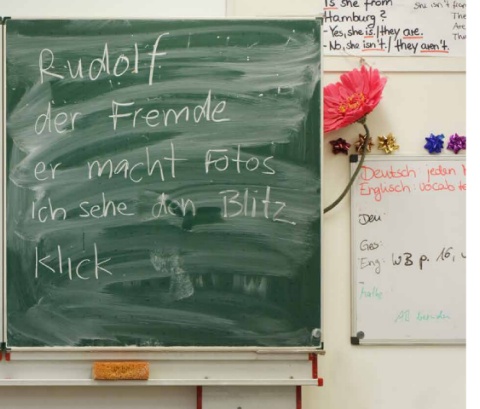 Rudolf
der Fremde
er macht Fotos
ich sehe den Blitz
Klick
Is she from
Hamburg?
- Yes, she is. / they are.
- No, she isn't. / they aren't.
She isn't
The
Are
Deutsch jeden
Englisch: vocab
Deu:
Ges:
Eng: WB p. 16,